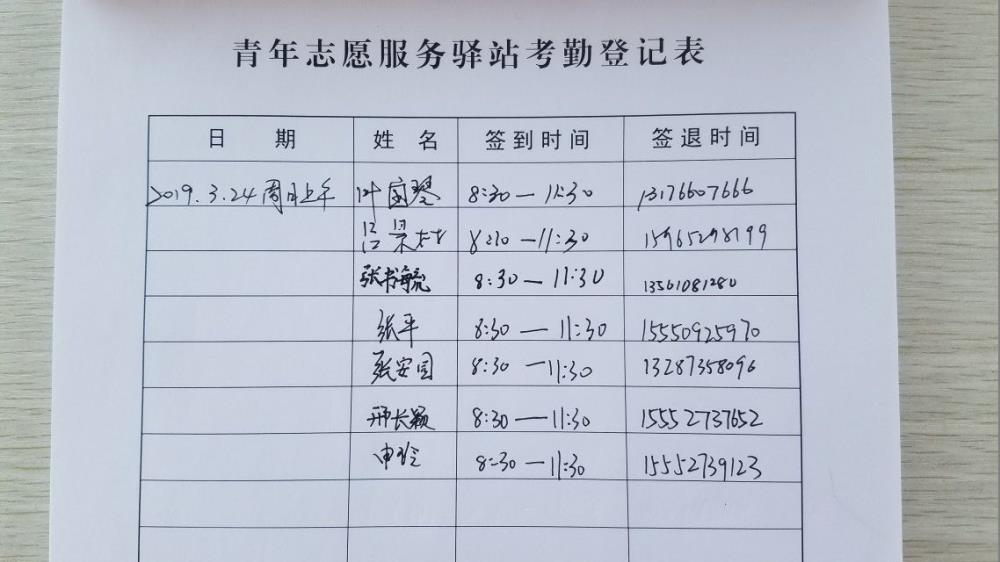 青年志愿服务驿站考勤登记表
日期 姓名 签到时间 签退时间
2019.3.24周日上午 叶宝琴 8:30—11:30 13176607666
吕梁 8:30—11:30 15965298199
张书毓 8:30—11:30 13561081280
张平 8:30—11:30 15550925970
张安国 8:30—11:30 13287358096
邢长颖 8:30—11:30 15552737652
申玲 8:30—11:30 15552739123